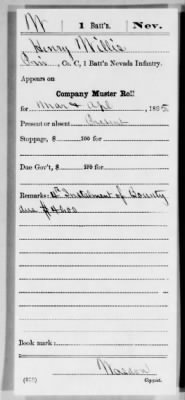 W | 1 Batt'n. | Nev.
Henry Willis
Pvt, Co. C, 1 Batt'n Nevada Infantry.
Appears on
Company Muster Roll
for Mar & Apl, 1865
Present or absent Present
Stoppage, $ 100 for
Due Gov't, $ 100 for
Remarks: Instalment of Bounty
due $40.00
Book mark:
(858) Copyist.